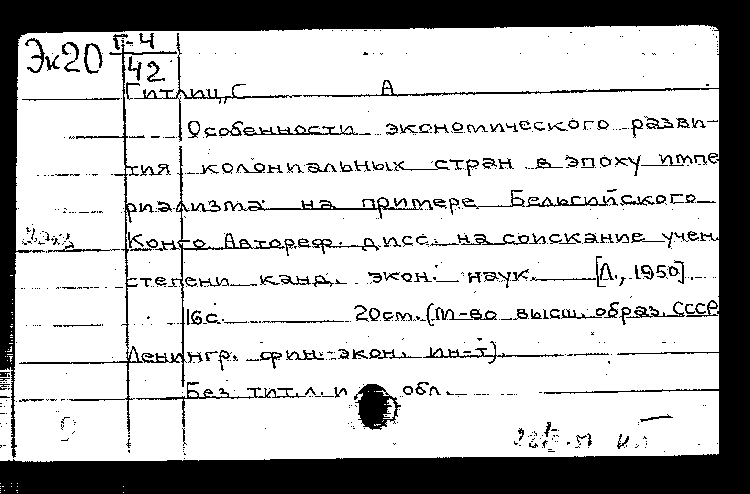 Эк20 Г-4
42
Гитлиц, С А
Особенности экономического разви-
тия колониальных стран в эпоху импе
риализма на примере Бельгийского
Конго Автореф. дисс. на соискание учен.
степени канд. экон. наук. [Л., 1950]
16с. 20см. (М-во высш. образ. СССР.
Ленингр. фин.-экон. ин-т).
Без тит. л. и обл.